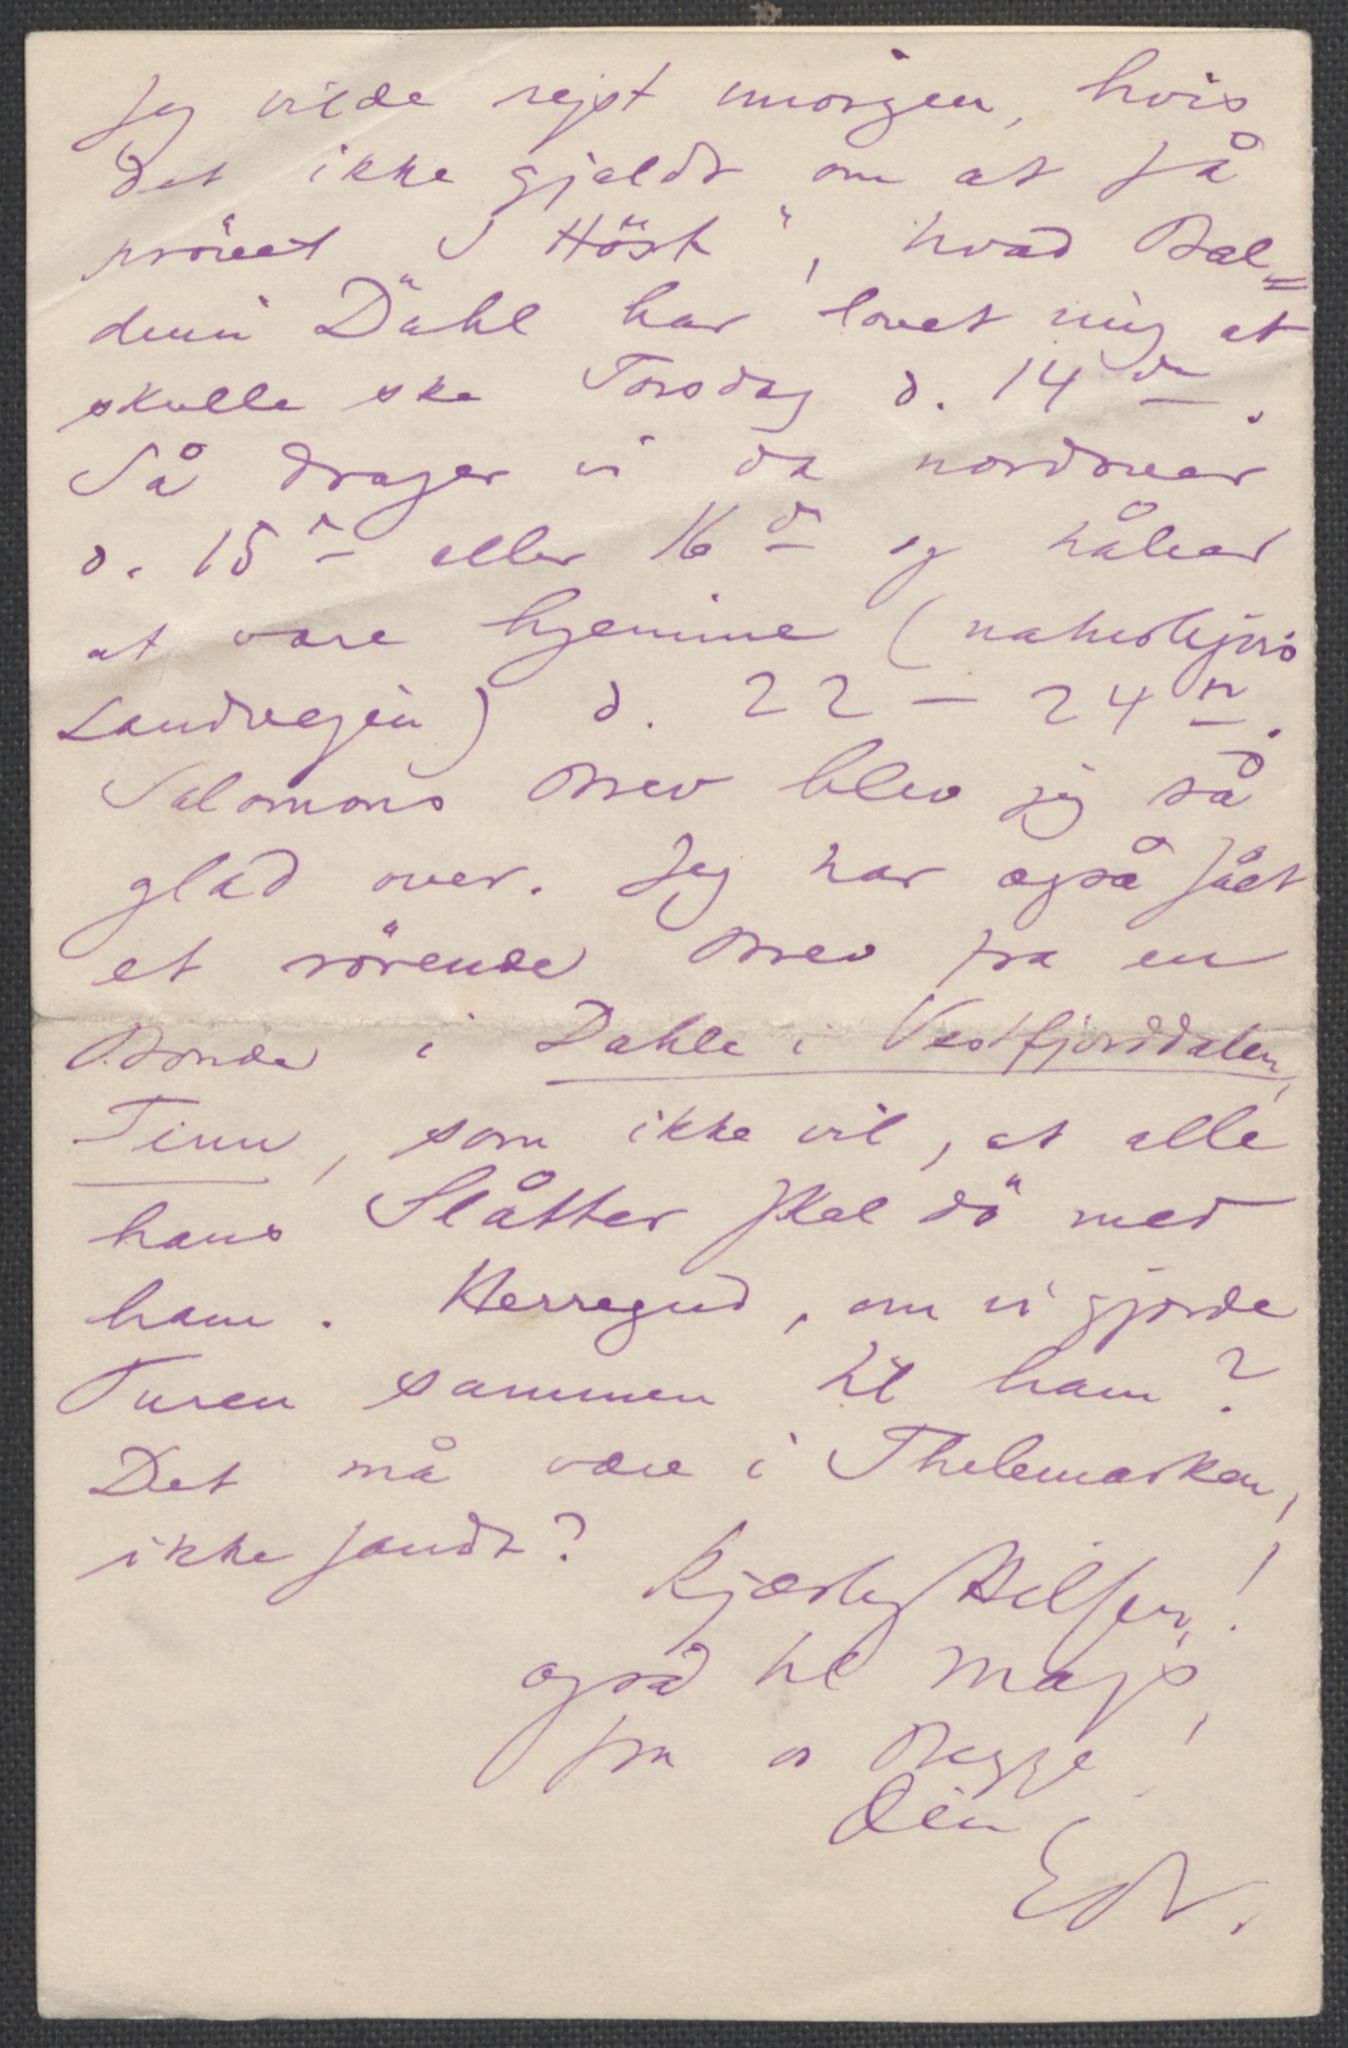 Jeg vilde rejst imorgen, hvis
det ikke gjaldt om at få
prövet "I Höst", hvad Bal=
duin Dahl har lovet mig at
skulle ske Torsdag d. 14de.
Så drager vi da nordover
d. 15d eller 16d og håber
at være hjemme (naturligvis
Landvejen) d. 22 – 24n.
Salomons Brev blev jeg så
glad over. Jeg har også fået
et rörende Brev fra en
Bonde i Dahle i Vestfjorddalen,
Tinn, som ikke vil, at alle
hans Slåtter skal dö med
ham. Herregud, om vi gjorde
Turen sammen til ham?
Det må være i Thelemarken,
ikke sandt?
Kjærlig Hilsen!
også til Majs,
fra os Begge!
Din
Edv.